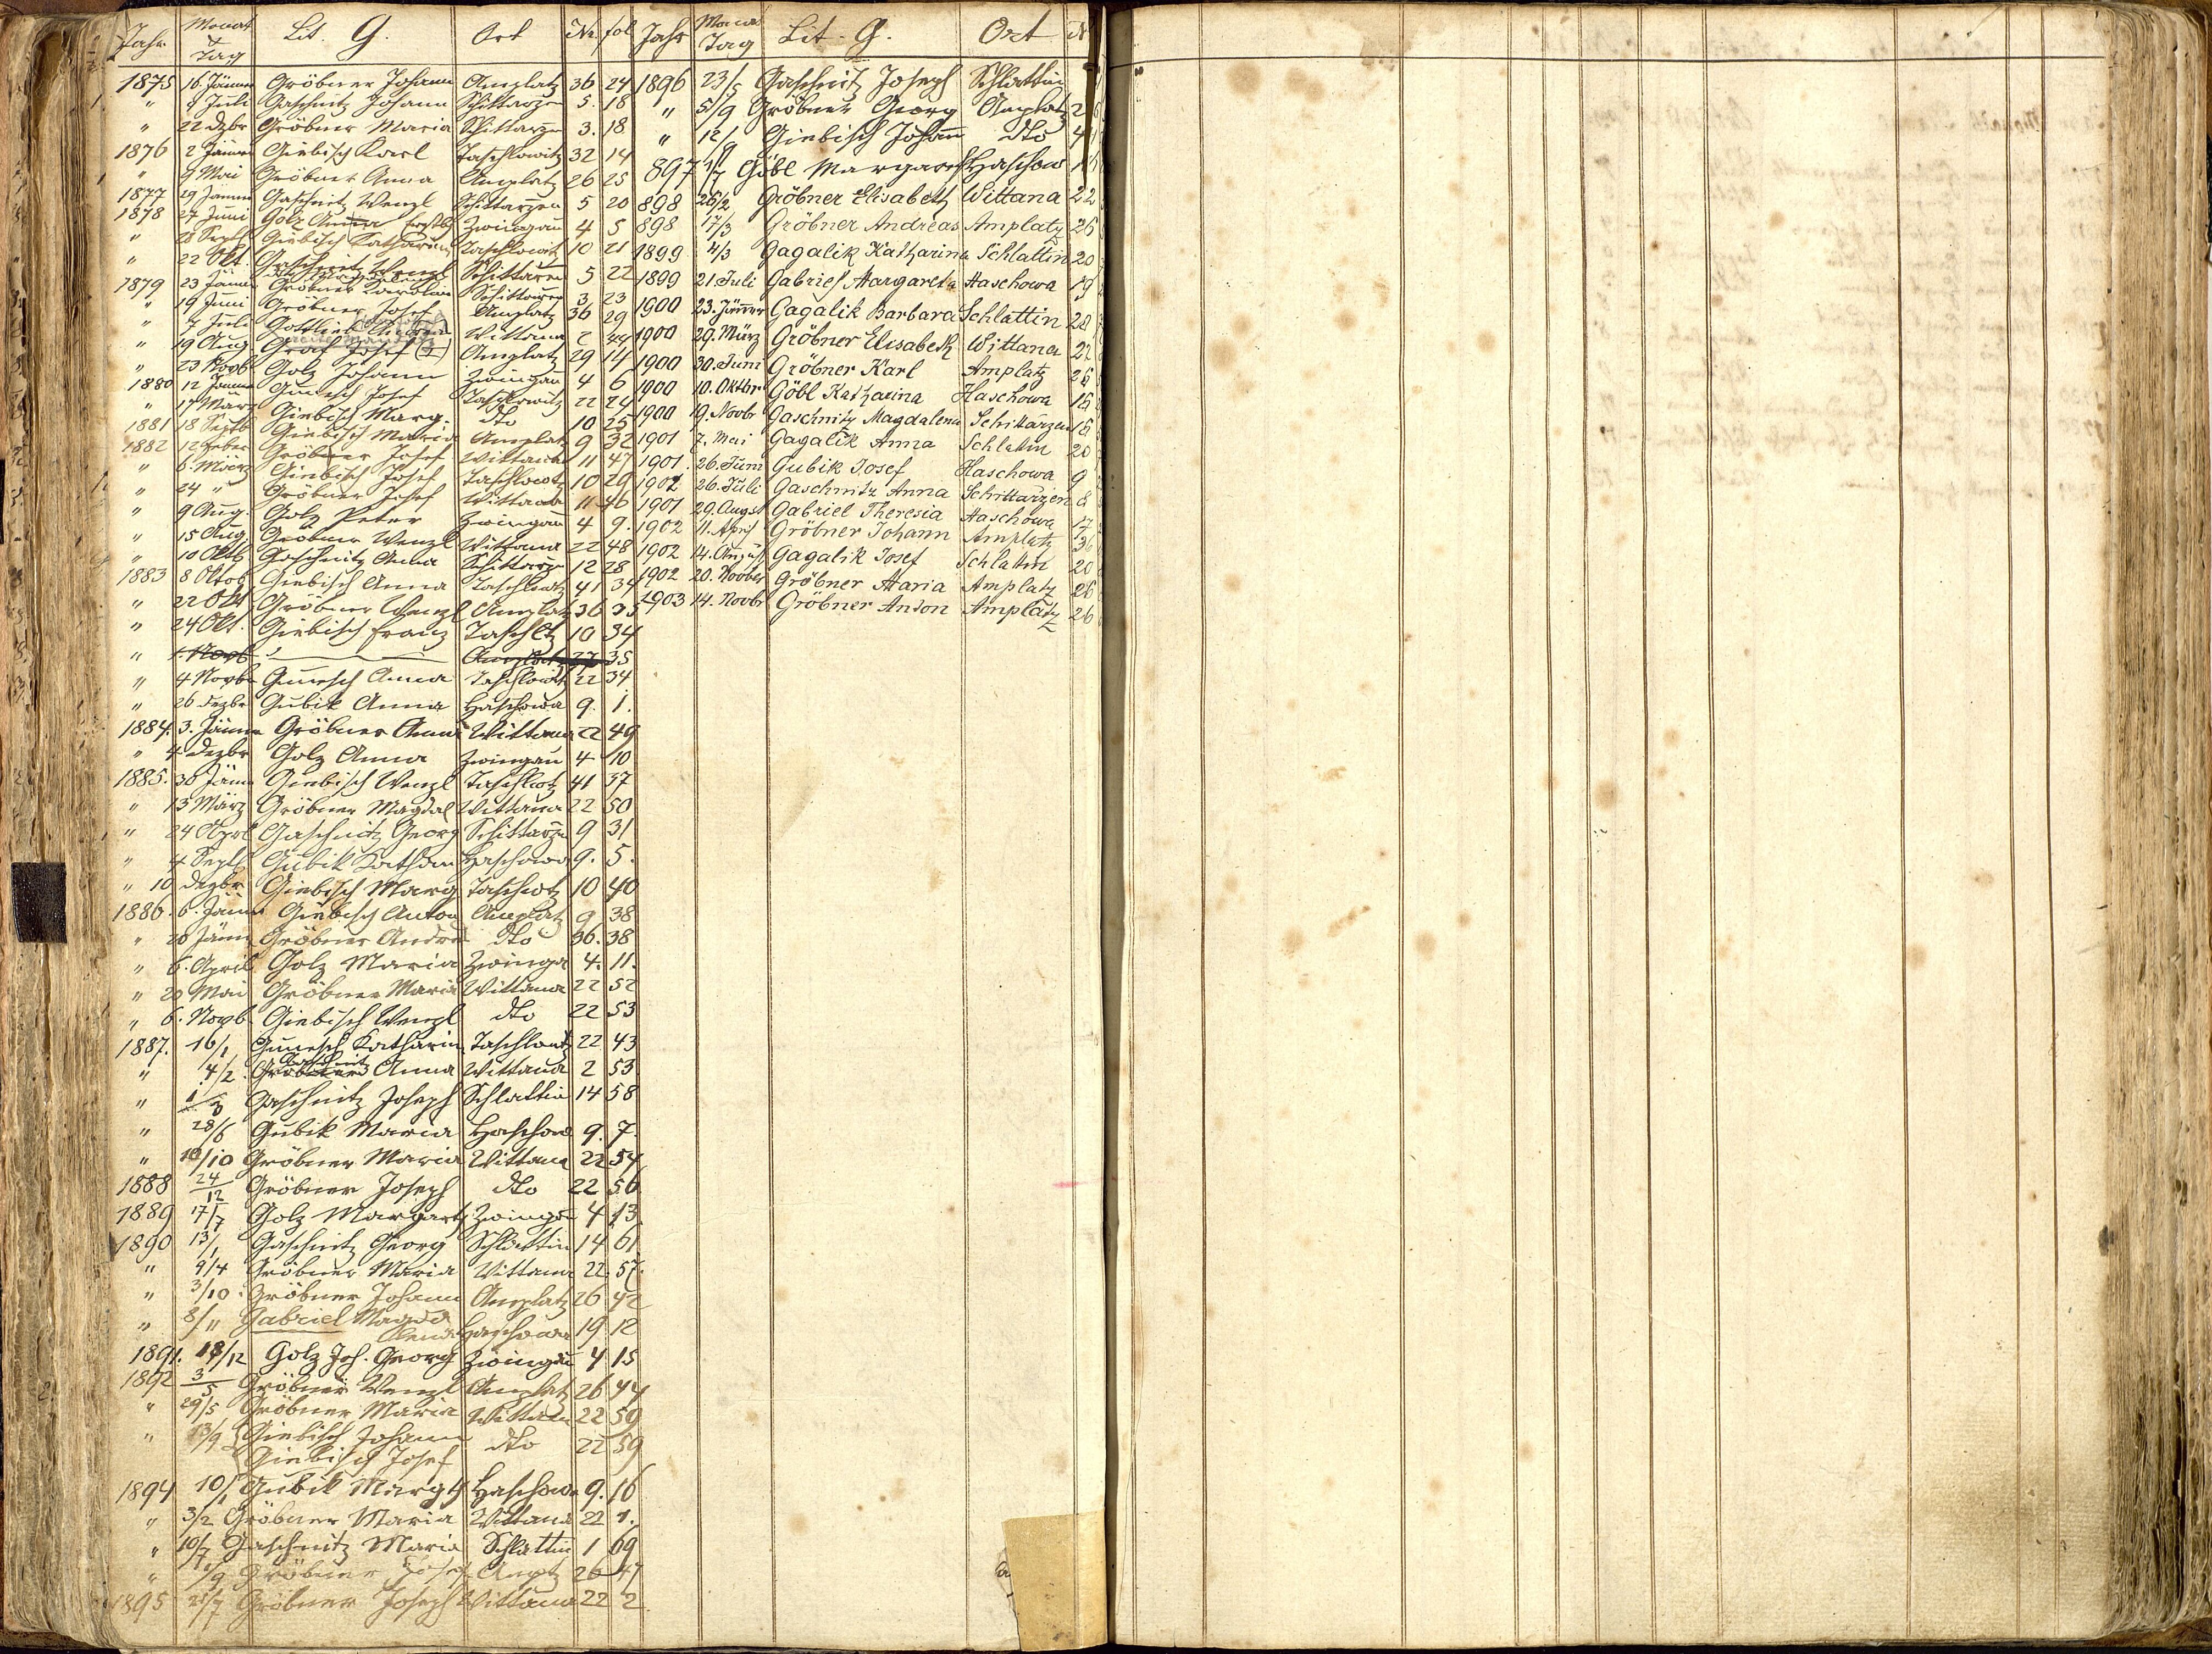 Jahr Monat & Tag Lit. G. Ort Nr fol
1875 16. Jänner Gröbner Johann Amplatz 36 24
" 8 Juli Gaschnitz Johann Schittarzen 5. 18
" 22 Dzbr Gröbner Maria Schittarzen 3. 18
1876 2 Jänner Giebisch Karl Taschlowitz 32 14
" 9 Mai Gröbner Anna Amplatz 26 25
1877 29 Jänner Gaschnitz Wenzl Schittarzen 5 20
1878 27 Juni Golz Anna Zwingau 4 5
" 28 Septb Giebisch Katharina Taschlowitz 10 21
" 22 Okt. Gaschnitz Wenzl Schittarzen 5 22
1879 23 Jänner Gröbner Karolina Schittarzen 3 23
" 19 Juni Gröbner Josef Amplatz 36 29
" 7 Juli Gottlieb Wittana 2 44
" 19 Aug Graf Josef Amplatz 29 14
" 23 Novb Golz Johann Zwingau 4 6
1880 12 Jänner Gunesch Josef Taschlowitz 22 24
" 17 März Giebisch Marg. dto 10 25
1881 18 Septb Giebisch Maria Amplatz 9 32
1882 12 Feber Gröbner Josef Wittana 11 47
" 6. März Giebisch Josef Taschlowitz 10 29
" 24 " Gröbner Josef Wittana 11 46
" 9 Aug. Golz Peter Zwingau 4 9.
" 15 Aug. Gröbner Wenzl Wittana 22 48
" 10 Oktb Gaschnitz Anna Schittarzn 12 28
1883 8 Oktob Giebisch Anna Taschlowitz 41 34
" 22 Okt Gröbner Wenzl Amplatz 36 35
" 24 Okt. Giebisch Franz Taschltz 10 34
" 1. Novb " Amplatz 27 35
" 4 Novbr Gunesch Anna Taschlowitz 22 34
" 26 Dezbr Gubik Anna Haschowa 9. 1.
1884. 3. Jänner Gröbner Anna Wittana 22 49
" 4 Dezbr Golz Anna Zwingau 4 10
1885. 30 Jänn Giebisch Wenzl Taschlwtz 41 37
" 13 März Gröbner Magdal Wittana 22 50
" 24 April Gaschnitz Georg Schittarzn 9 31
" 4 Septb Gubik Kathar Haschowa 9. 5.
" 10 Dezbr Giebisch Marg Taschwtz 10 40
1886. 6. Jänner Giebisch Anton Amplatz 9 38
" 20 Jänn Gröbner Andreas dto 36. 38
" 6. April Golz Maria Zwinga 4. 11.
" 20 Mai Gröbner Maria Wittana 22 52
" 6. Novb Giebisch Wenzl dto 22 53
1887. 16/1 Gunesch Katharin Taschlowtz 22 43
" 4/2 Gröbner Gaschnitz Anna Wittana 2 53
" 1/3 Gaschnitz Joseph Schlattin 14 58
" 28/6 Gubik Maria Haschowa 9. 7.
" 10/10 Gröbner Maria Wittana 22 54
1888 24/12 Gröbner Joseph dto 22 56
1889 17/7 Golz Margarth Zwingau 4 13.
1890 13/1 Gaschnitz Georg Schlattin 14 61
" 9/4 Gröbner Maria Wittana 22. 57.
" 3/10. Gröbner Johann Amplatz 26 42
" 8/11 Gabriel Magdalena Haschowa 19 12
1891. 18/12 Golz Joh. Georg Zwingau 4 15
1892 3/5 Gröbner Wenzl Amplatz 26 44
" 29/5 Gröbner Maria Wittana 22 59
" 13/9 Giebisch Johann dto 22 59
Giebisch Josef
1894 10/1 Gubik Margth Haschowa 9. 16
" 3/2 Gröbner Maria Wittana 22 1.
" 10/7 Gaschnitz Maria Schlattin 1 69
" /9 Gröbner Josef Amptz 26 47
1895 21/7 Gröbner Joseph Wittana 22 2
Jahr Monat Tag Lit. G. Ort N
1896 23/5 Gaschnitz Joseph Schlattin
" 5/9 Gröbner Georg Amplatz 26
" 12/9 Giebisch Johann dto 4
897 1/7 Göbl Margareth Haschow
898 26/2 Gröbner Elisabeth Wittana 22
898 17/3 Gröbner Andreas Amplatz 26
1899 4/3 Gagalik Katharina Schlattin 20
1899 21 Juli Gabriel Margareta Haschowa 19
1900 23. Jänner Gagalik Barbara Schlattin 20
1900 29. März Gröbner Elisabeth Wittana 22
1900 30. Juni Gröbner Karl Amplatz 26
1900 10. Oktbr Göbl Katharina Haschowa 16
1900 19. Novbr Gaschnitz Magdalena Schittarzen 16
1901 7. Mai Gagalik Anna Schlattin 20
1901. 26. Juni Gubik Josef Haschowa 9
1901 26. Juli Gaschnitz Anna Schittarzen 8
1901 29. August Gabriel Theresia Haschowa 17
1902 11. April Gröbner Johann Amplatz 36
1902 14. August Gagalik Josef Schlattin 20
1902 20. November Gröbner Maria Amplatz 26
1903 14. Novbr Gröbner Anton Amplatz 26